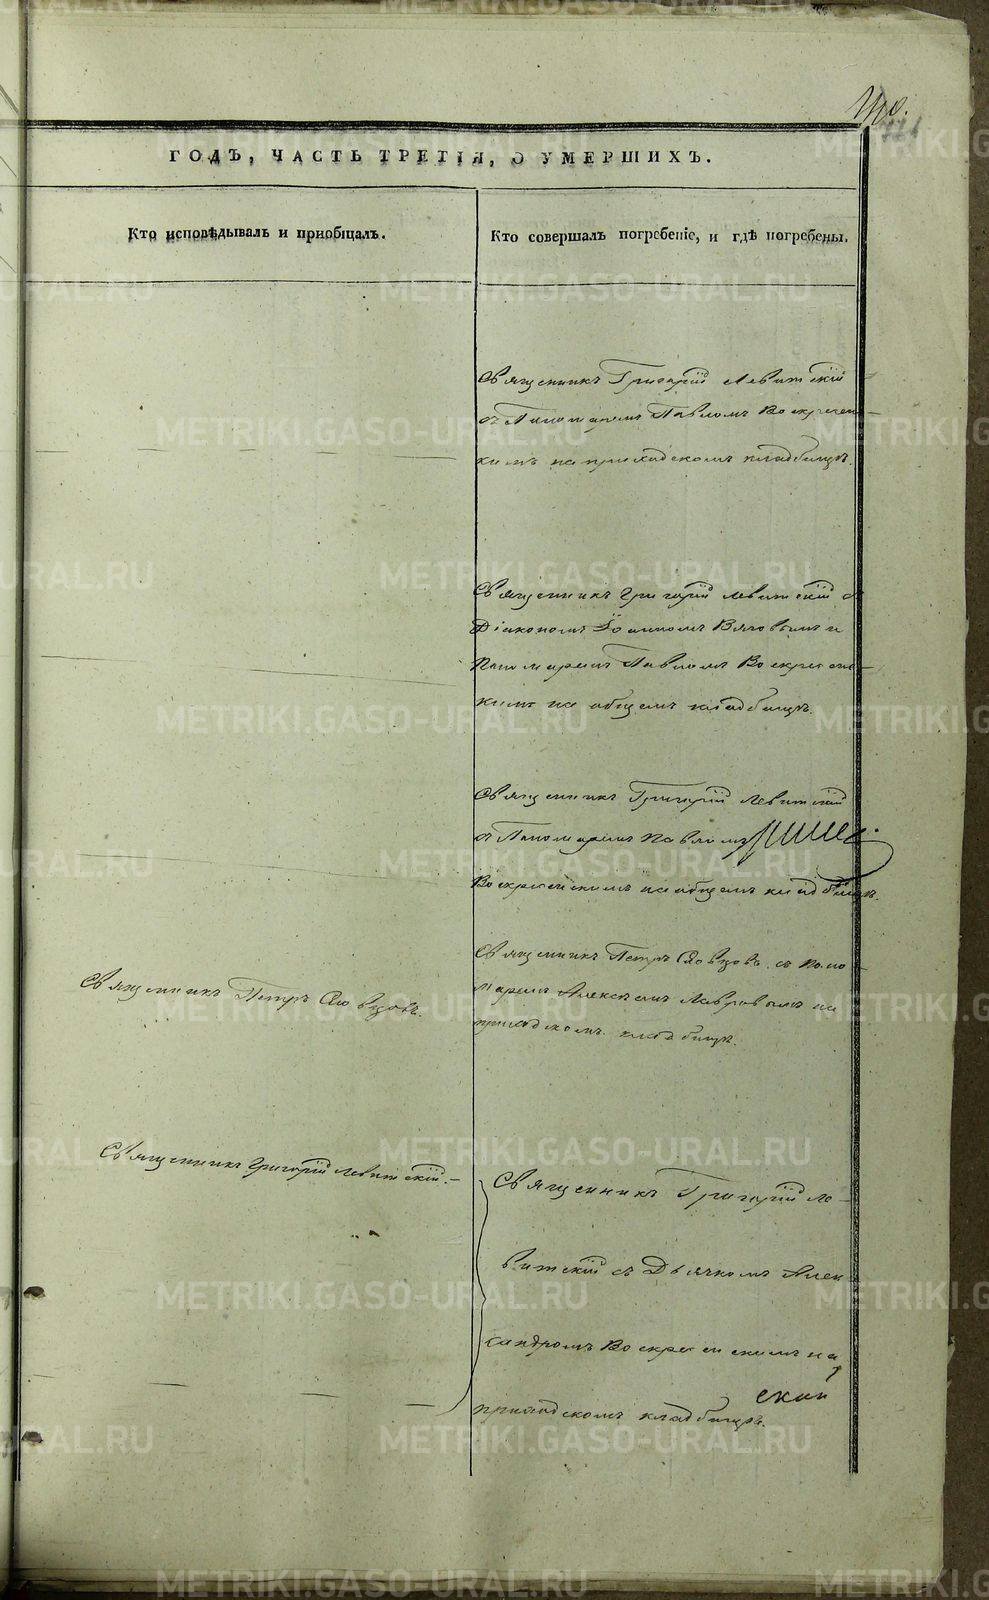 ГОДЪ, ЧАСТЬ ТРЕТІЯ, О УМЕРШИХЪ.
Кто исповѣдывалъ и приобщалъ.
Кто совершалъ погребеніе, и гдѣ погребены.
Священникъ Григорій Левитскій
съ Пономаремъ Павломъ Воскресен-
кимъ на приходскомъ кладбищѣ.
Священникъ Григорій Левитскій съ
Діакономъ Іоанномъ Вяловымъ и
Пономаремъ Павломъ Воскресен-
кимъ на общемъ кладбищѣ.
Священникъ Григорій Левитскій
съ Пономаремъ Павломъ
Воскресенскимъ на общемъ кладбищѣ.
Священникъ Петръ
Священникъ Петръ съ Поно-
маремъ Алексѣемъ Лавровымъ на
приходскомъ кладбищѣ.
Священникъ Григорій Левитскій.
Священникъ Григорій Ле-
витскій съ Дьячкомъ Алек
сандромъ Воскресенскимъ на
приходскомъ кладбищѣ.
METRIKI.GASO-URAL.RU